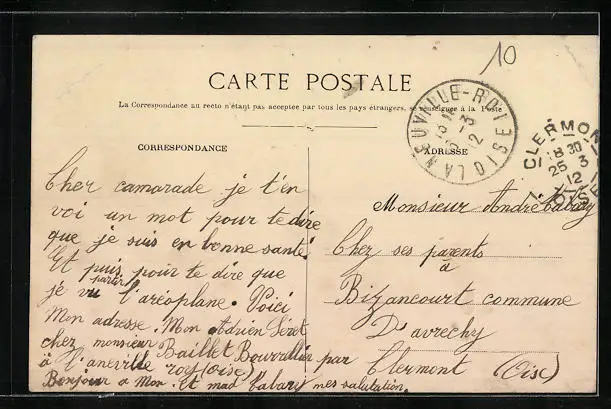 10
CARTE POSTALE
La Correspondance au recto n'étant pas acceptée par tous les pays étrangers, se renseigner à la Poste
CORRESPONDANCE
ADRESSE
LANEUVILLE-ROI OISE
3
12
CLERMON
18 30
25 3
12
OISE
Cher camarade je t'en
voi un mot pour te dire
que je suis en bonne santé
Et puis pour te dire que
je vu partir l'aréoplane. Voici
Mon adresse. Mon Adrien
chez monsieur Baillet Bourrellier
à l'aneville roy (oise)
Bonjour a Mon. et mad Cabary mes salutation.
Monsieur André Cabary
Chez ses parents
à
Bizancourt commune
D'avrechy
par Clermont (Oise)